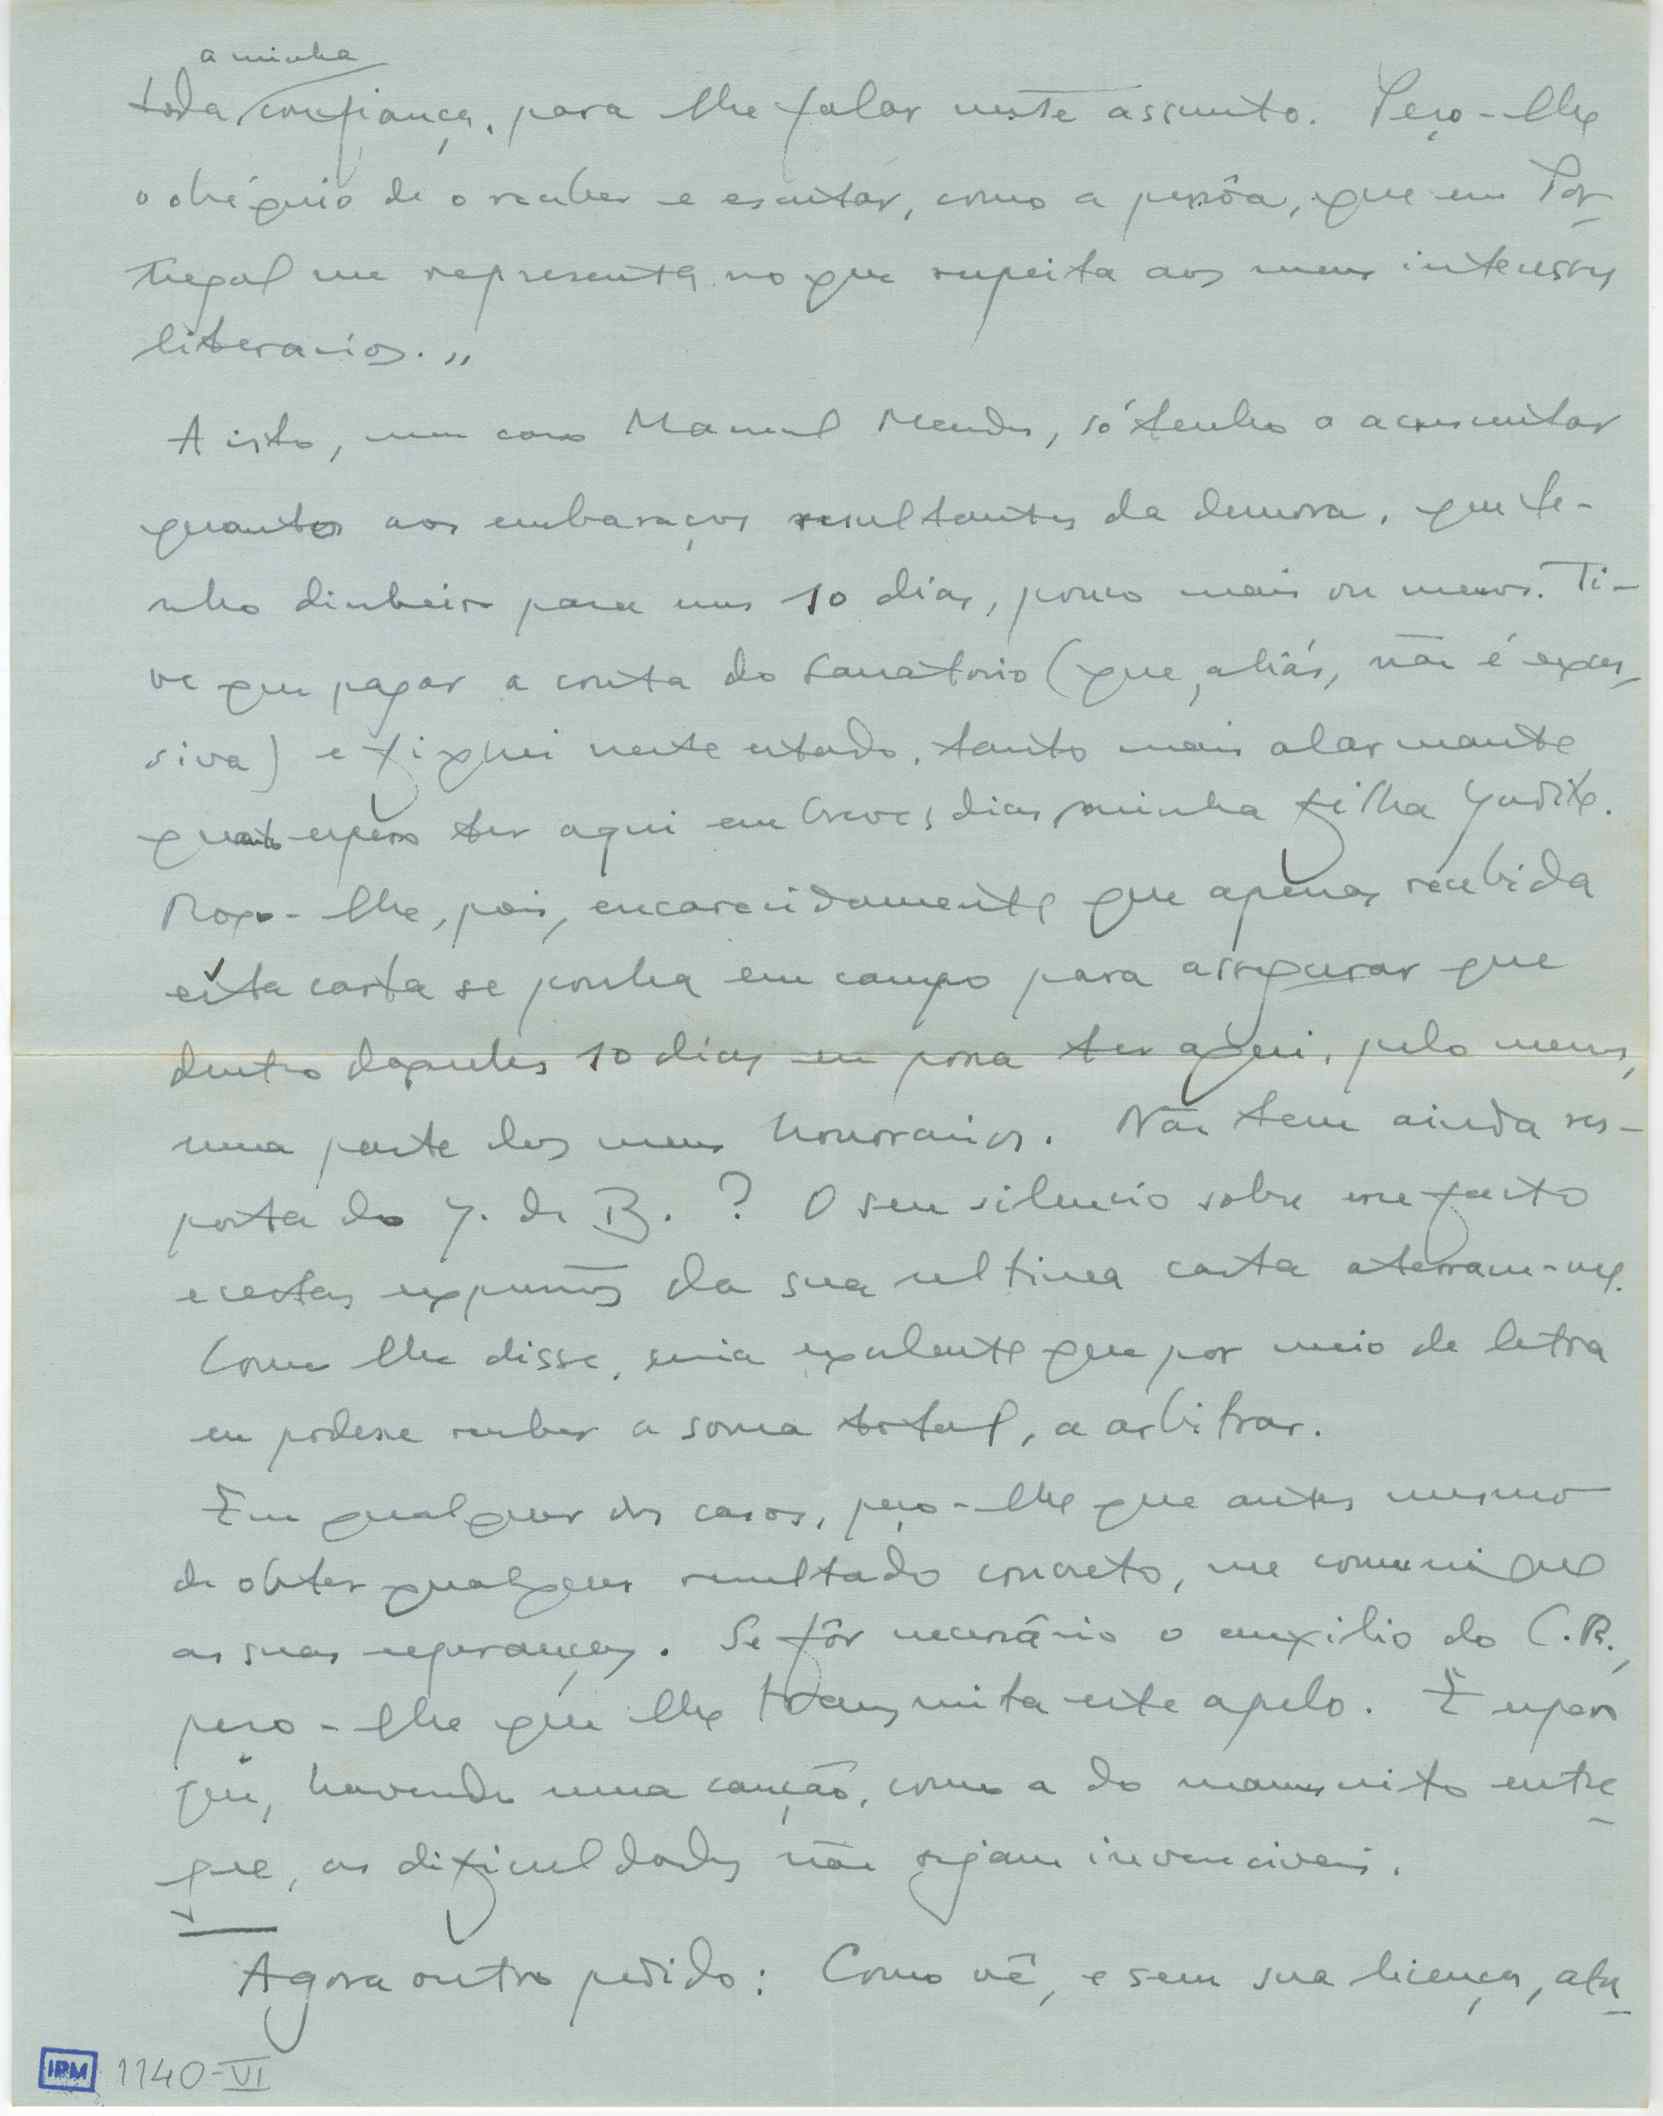 a minha
toda confiança, para lhe falar neste assunto. Peço-lhe
o obséquio de o receber e escutar, como a pessôa, que em Por-
tugal me representa no que respeita aos meus interesses
literarios.„
A isto, meu caro Manuel Mendes, só tenho a acrescentar
quanto aos embaraços resultantes da demora, que te-
nho dinheiro para uns 10 dias, pouco mais ou menos. Ti-
ve que pagar a conta do Sanatorio (que, aliás, não é exces-
siva) e fiquei neste estado, tanto mais alarmante
quanto espero ter aqui em breves dias minha filha Judite.
Rogo-lhe, pois, encarecidamente que apenas recebida
esta carta se ponha em campo para assegurar que
dentro daqueles 10 dias eu possa ter aqui, pelo menos,
uma parte dos meus honorarios. Não tem ainda res-
posta do J. de B.? O seu silencio sobre esse facto
e certas expressões da sua ultima carta aterram-me.
Como lhe disse, seria excelente que por meio de letra
eu podesse receber a soma total, a arbitrar.
Em qualquer dos casos, peço-lhe que antes mesmo
de obter qualquer resultado concreto, me comunique
as suas esperanças. Se fôr necessário o auxilio do C.R.,
peço-lhe que lhe transmita este apelo. E espero
que, havendo uma caução, como a do manuscrito entre-
gue, as dificuldades não sejam invenciveis.
Agora outro pedido: Como vê, e sem sua licença,
IPM 1140-VI